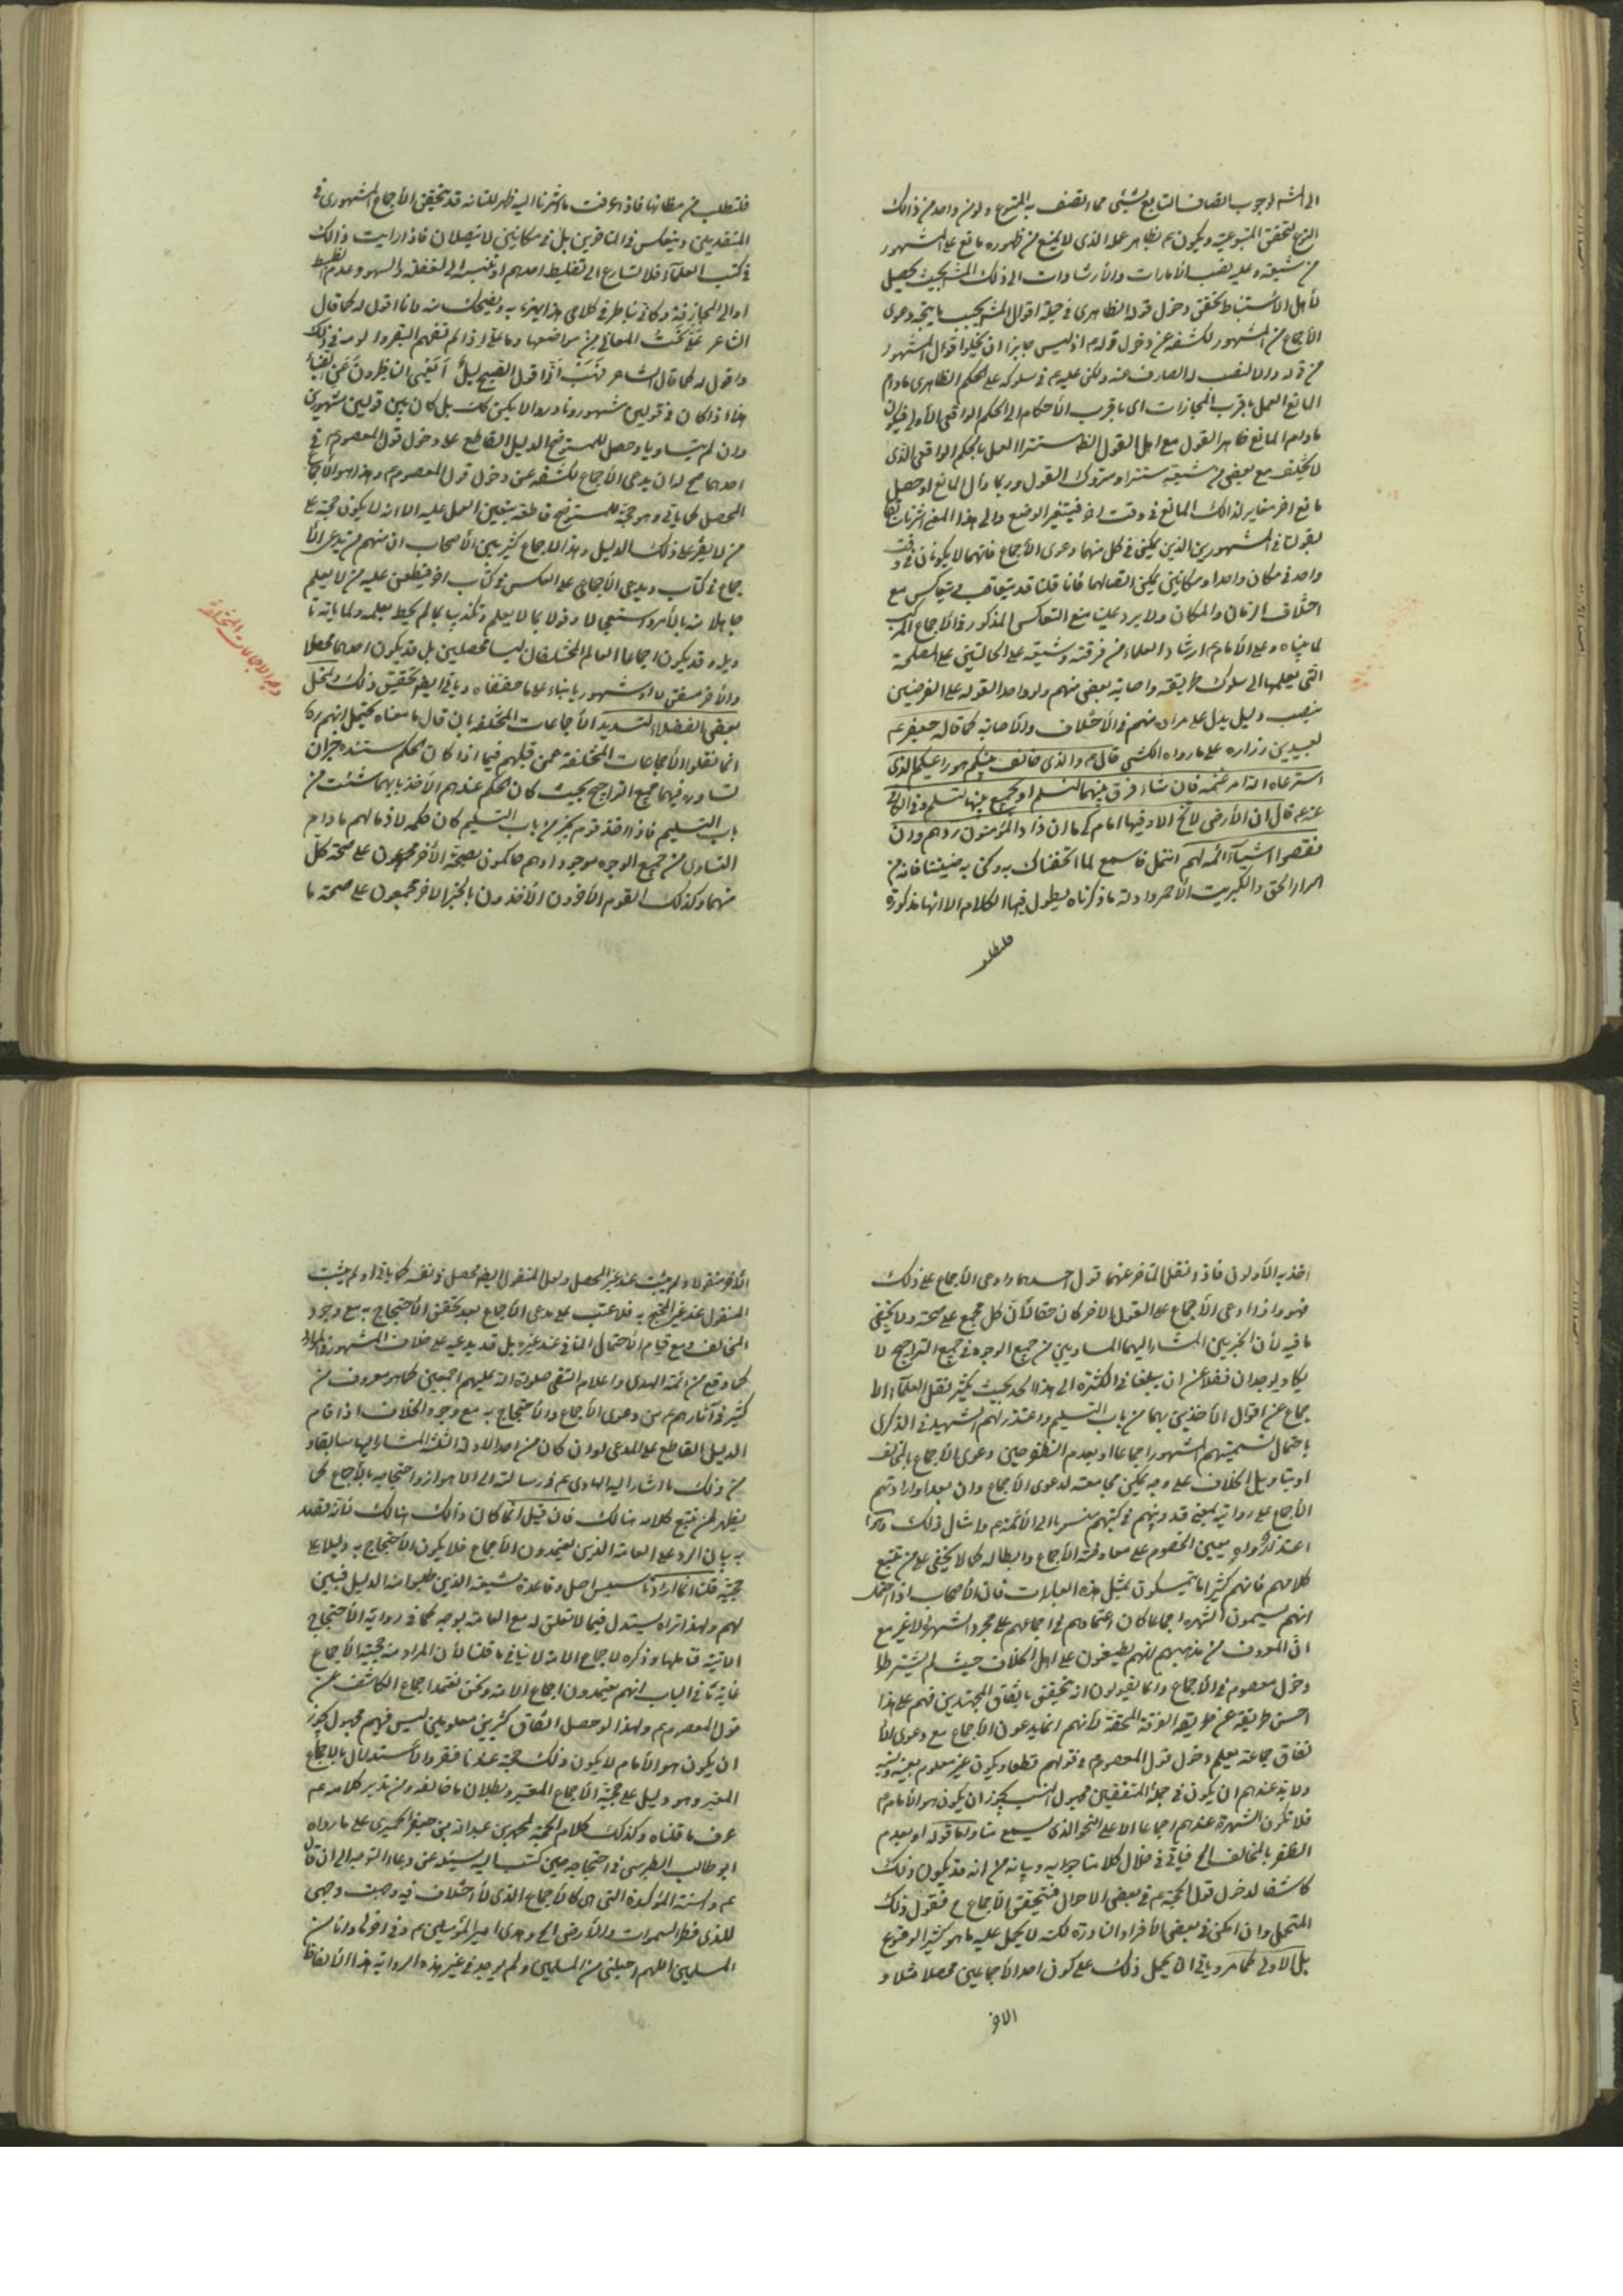 الى المشهور لوجوب اتصاف التابع بشيئ مما اتصف به المتبوع ولو من واحد من ذلك
النوع لتحقق المتبوعية ويكون بظاهر عمله الذى لا يمنع من ظهوره مانع على المشهور
من شيعته وعليه نصب الأمارات والأرشادات الى ذلك بحيث يحصل
لأهل الأستنباط تحقق دخول قوله الظاهرى فى جملة اقوال بحيث يتجه دعوى
الأجماع من المشهور لكشفه عن دخول قوله اذ ليس جايزا ان يخلوا قوال المشهور
من قوله والا لنصب له الصارف عنه ولكن عليه فى سلوكه على الحكم الظاهرى مادام
المانع العمل باقرب المجازات اى باقرب الأحكام الى الحكم الواقعى الأولى فيكون
مادام المانع ظاهر القول مع اهل القول مستترا العمل بالحكم الواقعى الذى
لا يختلف مع بعض من شيعته مستترا ومتروك القول وربما زال المانع او حصل
مانع اخر مغاير لذلك المانع فى وقت اخر فيتغير الوضع والى هذا المعنى اشرنا
بقولنا فى المشهورين الذين يمكن فى كل منهما دعوى الأجماع فانهما لا يكونان فى وقت
واحد فى مكان واحد او مكانين يمكن اتصالهما فانا قلنا قد يتعاقب فى يتعاكس مع
اختلاف الزمان والمكان ولا يرد علينا منع التعاكس المذكور فى الأجماع المركب
لما بيناه وعلى الأمام ارشاد العلماء من فرقته وشيعته على الحالتين على المصلحة
التى يعلمها الى سلوك طريقته واصابة بعض منهم ولو واحد القوله على الفرضين
بنصب دليل يدل على مراده منهم فى الأختلاف والأصابة كما قاله جعفر عم
لعبيد بن زرارة على ما رواه الكشى قال عم والذى فرق بينكم هو راعيكم الذى
استرعاه الله امر غنمه فان شاء فرق بينهما لتسلم او يجمع بينهما لتسلم وفى الكافى
عنه عم قال ان الأرض لا تخلو الا وفيها امام كيما ان زاد المؤمنون ردهم وان
نقصوا شيئا اتمه لهم انتهى فاسمع لما اتحفناك به وكن به ضنينا فانه من
اسرار الحق والكبريت الأحمر وادلة ما ذكرناه يطول فيها الكلام الا انها مذكورة
فلتطلب
فلتطلب من مظانها فاذا عرفت ما اشرنا اليه ظهر لك انه قد يتحقق الأجماع المشهورى فى
المتقدمين وينعكس فى المتأخرين بل فى مكانين لا يتصلان فاذا رايت ذلك
فى كتب العلماء فلا تسارع الى تغليط احدهم او تنسبه الى الغفلة والسهو وعدم الضبط
او الى المجازفة وكانى بناظر فى كلامى هذا يهزء به ويضحك منه وانا اقول له كما قال
الشاعر علىّ نحت المعانى من مواضعها وما علىّ اذا لم تفهم البقر والومه فى ذلك
واقول له كما قال الشاعر فهب انى اقول الصبح ليل ايعمى الناظرون عن الضياء
هذا اذا كان فى قولين مشهور ونادر والا يكن كك بل كان بين قولين مشهورين
وان لم يتساويا وحصل للمستوضح الدليل القاطع على دخول قول المعصوم فى
احدهما صح له ان يدعى الأجماع لكشفه عن دخول قول المعصوم وهذا هو الأجماع
المحصل كما ياتى وهو حجة للمستوضح قاطعة يتعين العمل عليه الا انه لا يكون حجة على
من لا يعثر على ذلك الدليل وهذا الأجماع كثير بين الأصحاب ان منهم من يدعى الأ
جماع فى كتاب ويدعى الأجماع على العكس فى كتاب اخر فيطعن عليه من لا يعلم
جاهلا منه بالأمر واستعجالا وقولا بما لا يعلم وتكذيب بما لم يحط بعلمه ولما ياته تا
ويله وقد يكون اجماعا العالم المختلفان ليسا محصلين بل قد يكون احدهما محصلا
والأخر منقولا او مشهوريا بناء على ما حققناه وياتى ايضا تحقيق ذلك وتمحل
بعض الفضلاء لتسديد الأجماعات المختلفة بان قال ما معناه يحتمل انهم
انما نقلوا الأجماعات المختلفة عمن قبلهم فيما اذا كان الحكم مستنده خبران
تساوى فيهما جميع التراجيح بحيث كان الحكم عندهم الأخذ بايهما شئت من
باب التسليم فاذا اخذ قوم بخبر من باب التسليم كان حكمه لازما لهم مادام
التساوى من جميع الوجوه موجودا وهم حاكمون بصحة الأخر مجمعون على صحة كل
منهما وكذلك القوم الأخرون الأخذون بالخبر الاخر مجمعون على صحة ما
وجه الاجماعات المختلفة
اخذ به الأولون فاذا نقل المتأخر عنهما قول احدهما وادعى الأجماع على ذلك
فهو واذا ادعى الأجماع على القول الاخر كان حقا لأن كل مجمع على صحته ولا يخفى
ما فيه لأن الخبرين المشار اليهما المتساويين من جميع الوجوه فى جميع التراجيح لا
يكاد يوجدان فضلا عن ان يبلغا فى الكثرة الى هذا الحد بحيث يكثر نقل العلماء الا
جماع عن اقوال الأخذين بهما من باب التسليم واعتذر لهم الشهيد فى الذكرى
باحتمال تسميتهم المشهور اجماعا او بعدم الظفر حين دعوى الأجماع بالمخالف
او بتأويل الخلاف على وجه يمكن مجامعته لدعوى الأجماع وان بعد او ارادتهم
الأجماع على روايته بمعنى تدوينهم فى كتبهم منسوبا الى الأئمة وامثال ذلك
اعتذاره معين الخصوم على معارضة الأجماع وابطاله كما لا يخفى على من تتبع
كلامهم فانهم كثيرا ما يتمسكون بمثل هذه العبارات فان الأصحاب اذا
انهم يسمون الشهرة اجماعا كان اعتمادهم فى اجماعهم على مجرد الشهرة لا غير مع
ان المعروف من مذهبهم انهم يطيعون على اهل الخلاف حيث لم يشترطوا
دخول معصوم فى الأجماع وانما يقولون انه يتحقق باتفاق المجتهدين فهم على هذا
احسن طريقة عن طريقة الفرقة المحقة لأنهم انما يدعون الأجماع مع دعوى الأ
تفاق جماعة يعلم دخول قول المعصوم فى قولهم قطعا ويكون غير معلوم بعينه ونسبه
ولا بد عندهم ان يكون فى جملة المتفقين مجهول النسب يجوز ان يكون هو الأمام
فلا تكون الشهرة عندهم اجماعا الا على النحو الذى يسمع منا واما قوله او بعدم
الظفر بالمخالف الخ فياتى فى خلال كلامنا جوابه وبيانه من انه قد يكون ذلك
كاشفا لدخول قول الحجة فى بعض الاحوال فيتحقق الأجماع فنقول ذلك
المتحمل وان امكن فى بعض الأفراد النادرة لكنه لا يحمل عليه ما هو كثير الوقوع
بل الأولى كما مر وياتى ان يحمل ذلك على كون احد الأجماعين محصلا مثلا و
الاخر
الأخر منقولا ولم يثبت عند غير المحصل ولعل المنقول ايضا محصل فى نفسه كما ياتى او لم يثبت
المنقول عند غير المحتج به فلا عتب على مدعى الأجماع بعد تحقق الأحتجاج به مع وجود
المخالف ومع قيام الأحتمال المنافى عند غيره بل قد يدعيه على خلاف المشهور
كما وقع من ائمة الهدى واعلام التقى صلوات الله عليهم اجمعين كما هو معروف من
كثير فى آثارهم من دعوى الأجماع والأحتجاج به مع وجود الخلاف اذا قام
الدليل القاطع على المدعى له وان كان من احد الادلة الثلثة المشار اليها سابقا و
من ذلك ما اشار اليه الهادى عم فى رسالته الى الاهواز واحتجاجه بالأجماع كما
يظهر لمن تتبع كلامه هنالك فان قيل انما كان ذلك هنالك لأنه قصد
به بيان الرد على العامة الذين يعتمدون الأجماع فلا يكون الأحتجاج به دليلا على
حجيته قلنا انما اراد تأسيس اصل وقاعدة لشيعته الذين طلبوا منه الدليل فبين
لهم ولهذا تراه يستدل فيما لا تعلق له مع العامة بوجه كما فى رواية الأحتجاج
الاتية فتاملها وذكره لاجماع الامة لا ينافى ما قلنا لأن المراد منه حجية الأجماع
غاية ما فى الباب انهم يعتمدون اجماع الامة ونحن نعتمد اجماع الكاشف عن
قول المعصوم ولهذا لو حصل اتفاق كثيرين معلومين ليس فيهم مجهول يجوز
ان يكون هو الأمام لا يكون ذلك حجة عندنا فتقرر الأستدلال بالأجماع
المعتبر وهو دليل على حجية الأجماع المعتبر وبطلان ما خالفه ومن تدبر كلامه عم
عرف ما قلناه وكذلك كلام الحجة لمحمد بن عبد الله بن جعفر الحميرى على ما رواه
ابو طالب الطبرسى فى احتجاجه حين كتب اليه يسئله عن دعاء التوجه الى ان قال
عم والسنة المؤكدة التى هى كالأجماع الذى لا اختلاف فيه وجهت وجهى
للذى فطر السموات والأرض الخ وهدى امير المؤمنين عم وفى اخرها وانا من
المسلمين اللهم اجعلنى من المسلمين ولم يوجد فى غير هذه الرواية هذا الألفاظ